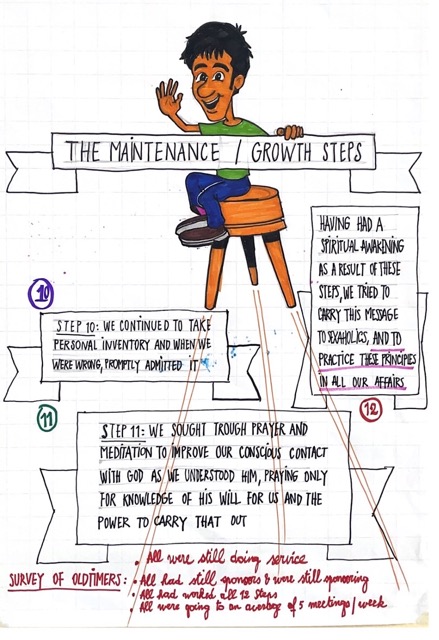 THE MAINTENANCE / GROWTH STEPS
HAVING HAD A
SPIRITUAL AWAKENING
AS A RESULT OF THESE
STEPS, WE TRIED TO
CARRY THIS MESSAGE
TO SEXAHOLICS, AND TO
PRACTICE THESE PRINCIPLES
IN ALL OUR AFFAIRS
12
10
STEP 10: WE CONTINUED TO TAKE
PERSONAL INVENTORY AND WHEN WE
WERE WRONG, PROMPTLY ADMITTED IT
11
STEP 11: WE SOUGHT TROUGH PRAYER AND
MEDITATION TO IMPROVE OUR CONSCIOUS CONTACT
WITH GOD AS WE UNDERSTOOD HIM, PRAYING ONLY
FOR KNOWLEDGE OF HIS WILL FOR US AND THE
POWER TO CARRY THAT OUT
SURVEY OF OLDTIMERS:
• All were still doing service
• All had still sponsors & were still sponsoring
• All had worked all 12 Steps
• All were going to an average of 5 meetings / week